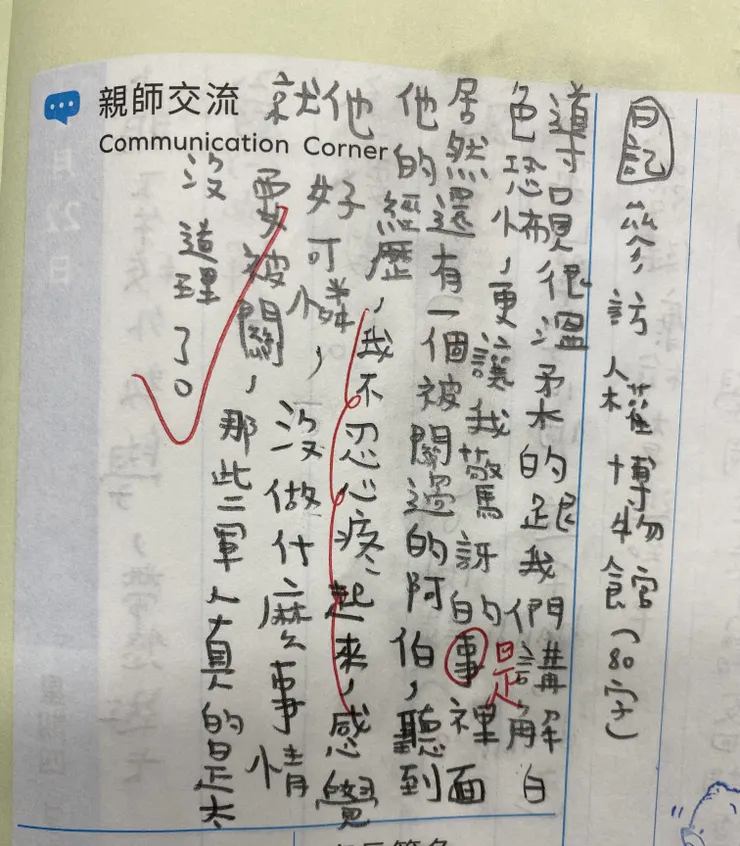 親師交流
Communication Corner
日記 參訪人權博物館(80字)
導覽很溫柔的跟我們講解白
色恐怖,更讓我驚訝的事裡面
是
居然還有一個被關過的阿伯,聽到
他的經歷,我不忍心疼起來,感覺
他好可憐,沒做什麼事情
就要被關,那些軍人真的是太
沒道理了。
22